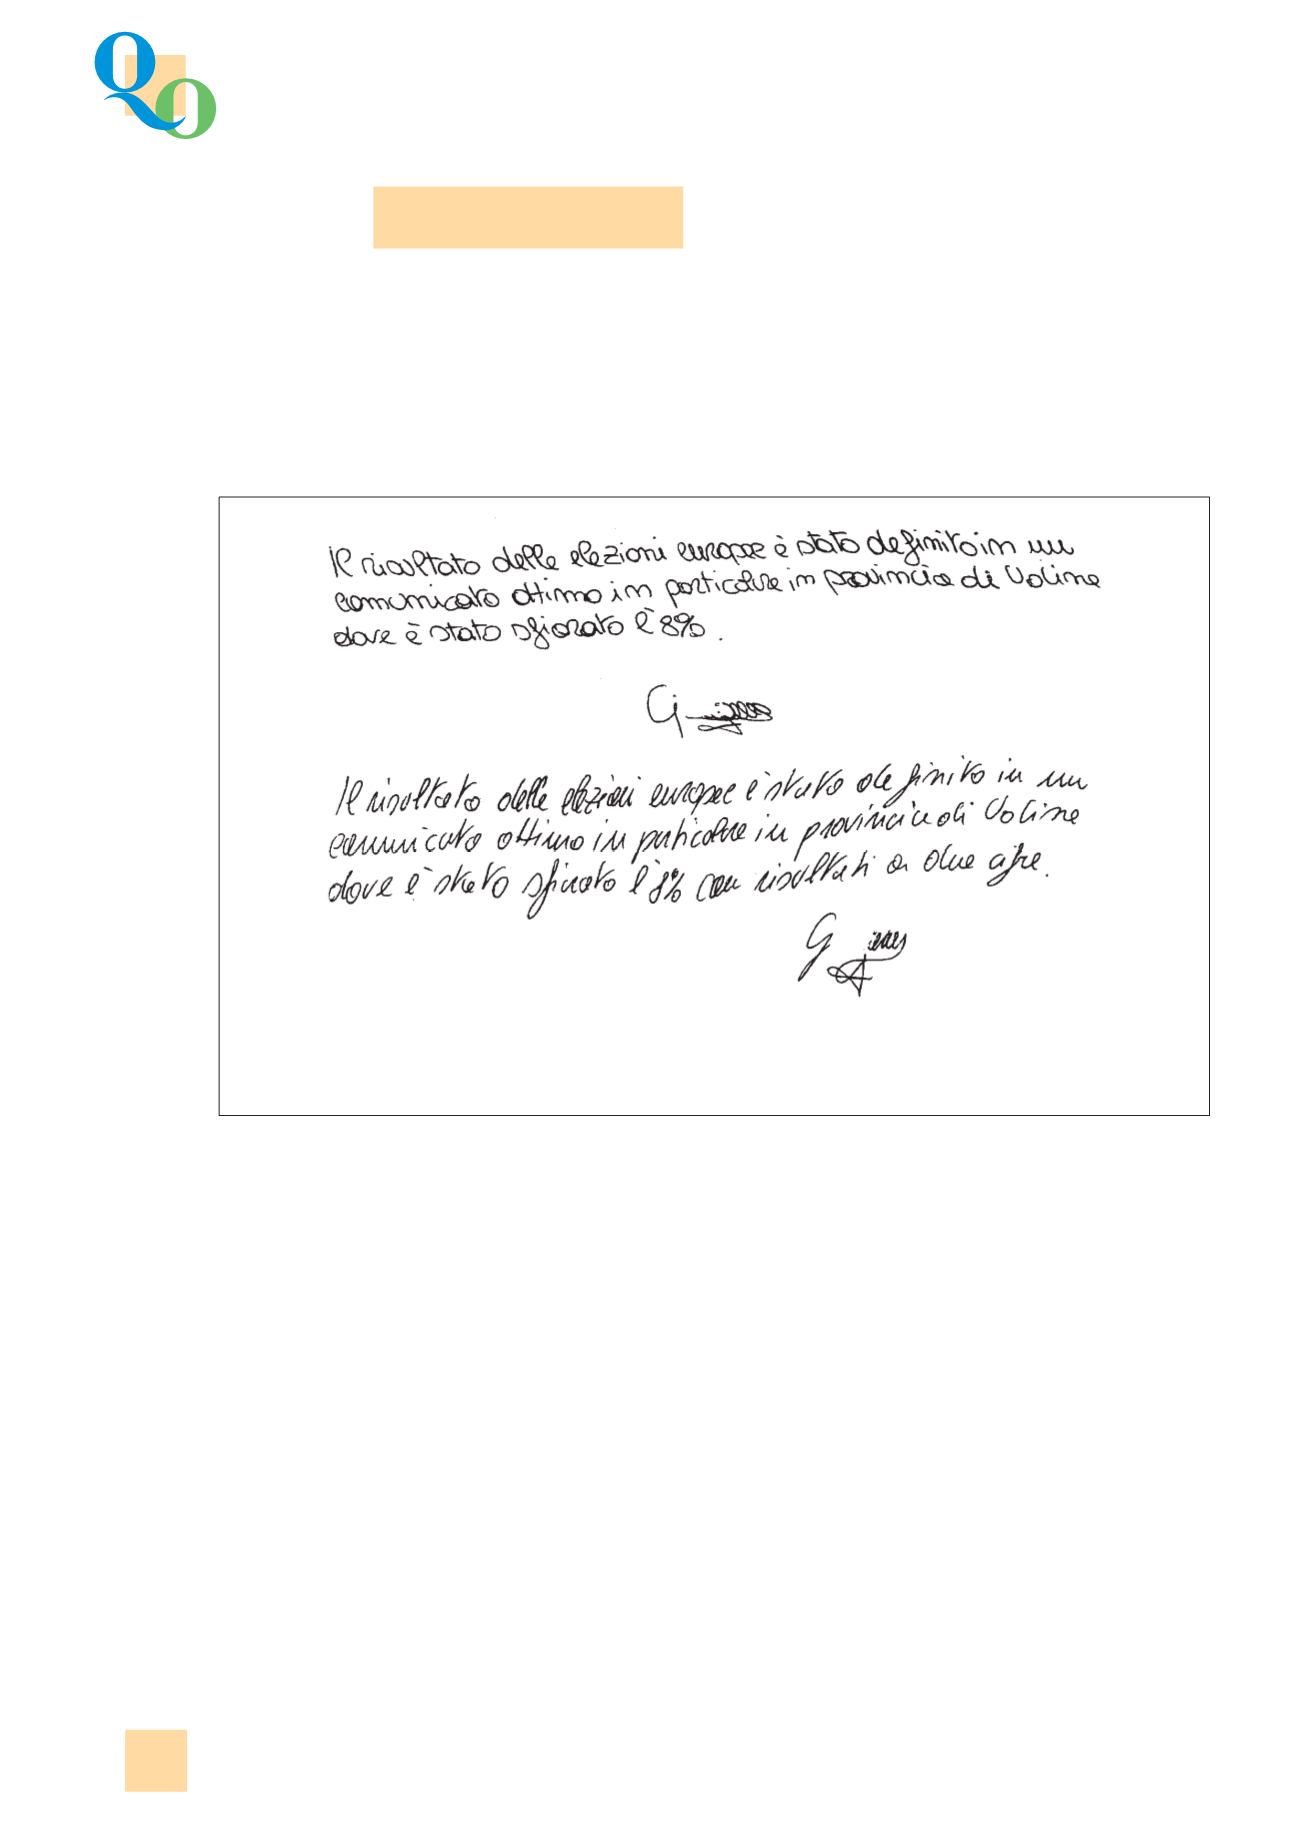 QO
Il risultato delle elezioni europee è stato definito in un
comunicato ottimo in particolare in provincia di Udine
dove è stato sfiorato l'8%.
Il risultato delle elezioni europee è stato definito in un
comunicato ottimo in particolare in provincia di Udine
dove è stato sfiorato l'8% con risultati a due cifre.